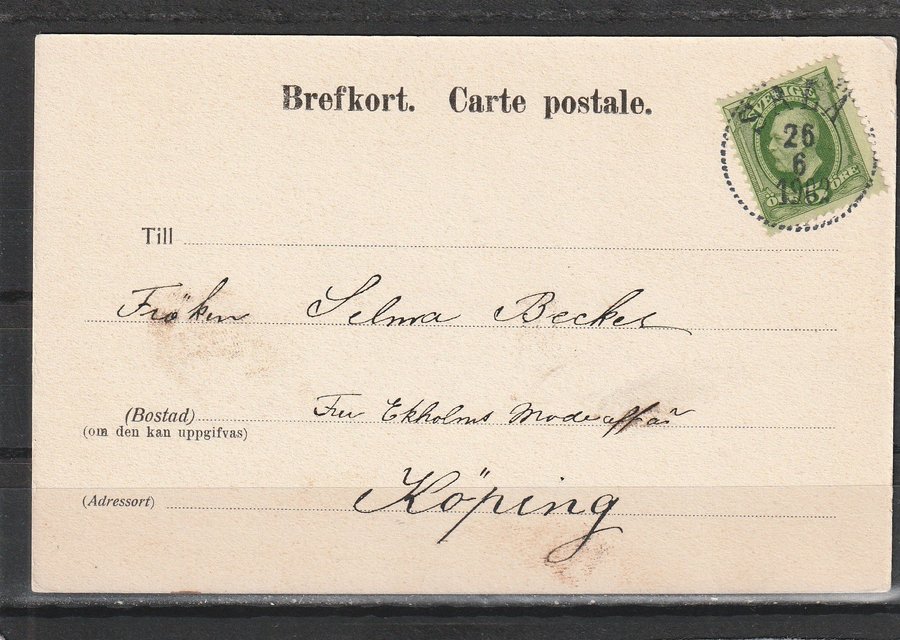 Brefkort. Carte postale.
SVERIGE
26
6
ÖRE
Till
Fröken Selma Becker
(Bostad) Fru Ekholms Modeaffär
(om den kan uppgifvas)
(Adressort) Köping